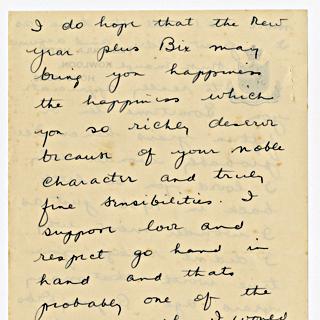 I do hope that the New
Year plus Bix may
bring you happiness
the happiness which
you so richly deserve
because of your noble
character and truly
fine sensibilities. I
suppose love and
respect go hand in
hand and thats
probably one of the
I would